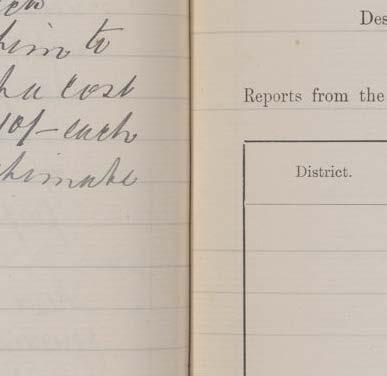 him to
a cost
10/- each
Des
Reports from the
District.